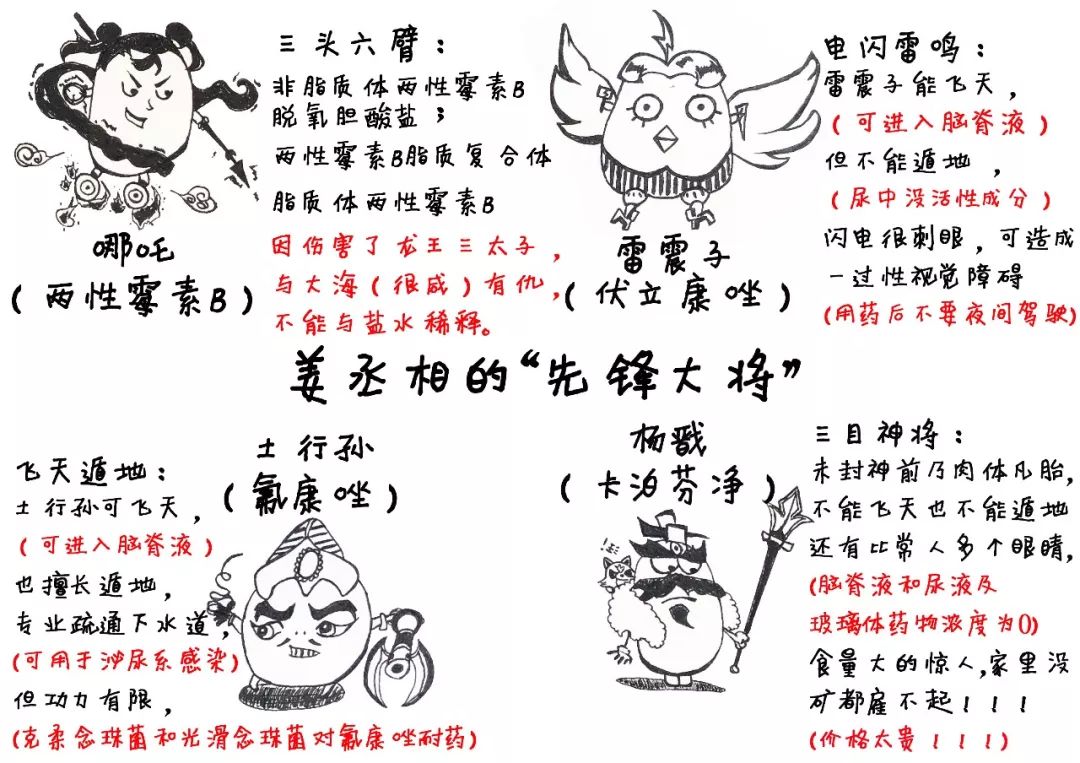 三头六臂：
非脂质体两性霉素B
脱氧胆酸盐；
两性霉素B脂质复合体
脂质体两性霉素B
因伤害了龙王三太子，
与大海（很咸）有仇，
不能与盐水稀释。
哪吒
（两性霉素B）
电闪雷鸣：
雷震子能飞天，
（可进入脑脊液）
但不能遁地，
（尿中没活性成分）
闪电很刺眼，可造成
一过性视觉障碍
（用药后不要夜间驾驶）
雷震子
（伏立康唑）
姜丞相的“先锋大将”
土行孙
（氟康唑）
飞天遁地：
土行孙可飞天，
（可进入脑脊液）
也擅长遁地，
专业疏通下水道，
（可用于泌尿系感染）
但功力有限，
（克柔念珠菌和光滑念珠菌对氟康唑耐药）
杨戬
（卡泊芬净）
三目神将：
未封神前乃肉体凡胎，
不能飞天也不能遁地
还有比常人多个眼睛，
（脑脊液和尿液及
玻璃体药物浓度为0）
食量大的惊人，家里没
矿都雇不起！！！
（价格太贵！！！）